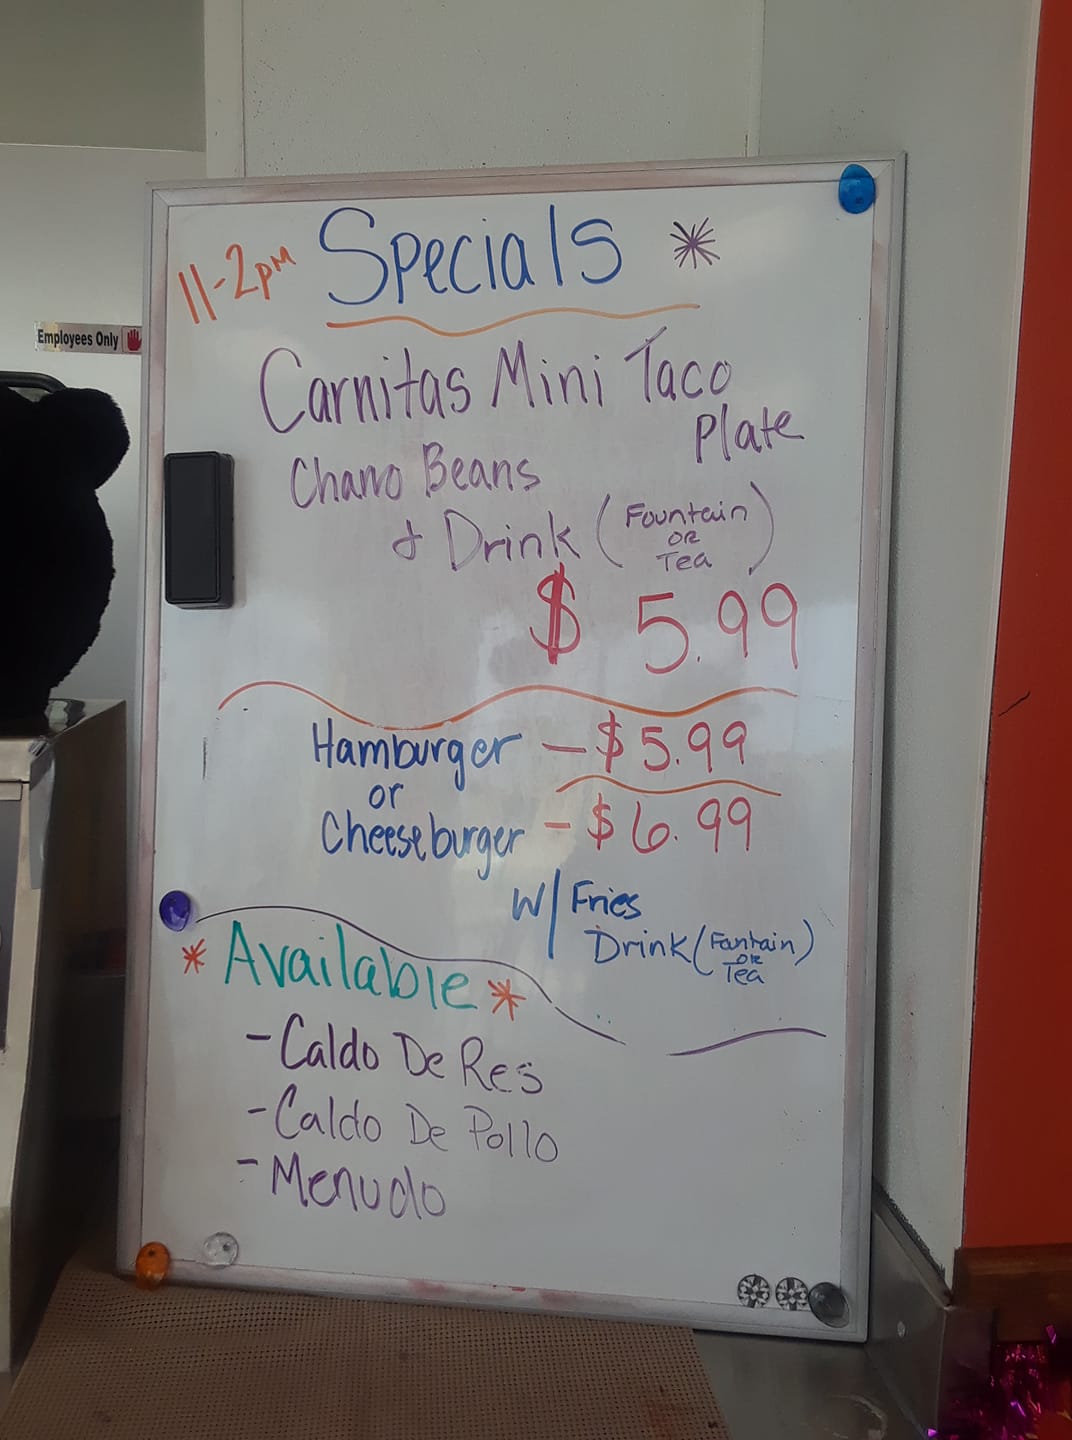 11-2pm Specials *
Employees Only
Carnitas Mini Taco
Plate
Charro Beans
& Drink (Fountain
OR
Tea)
$ 5.99
Hamburger - $5.99
or
Cheeseburger - $6.99
W/ Fries
Drink (Fantain
OR
Tea)
* Available *
- Caldo De Res
- Caldo De Pollo
- Menudo